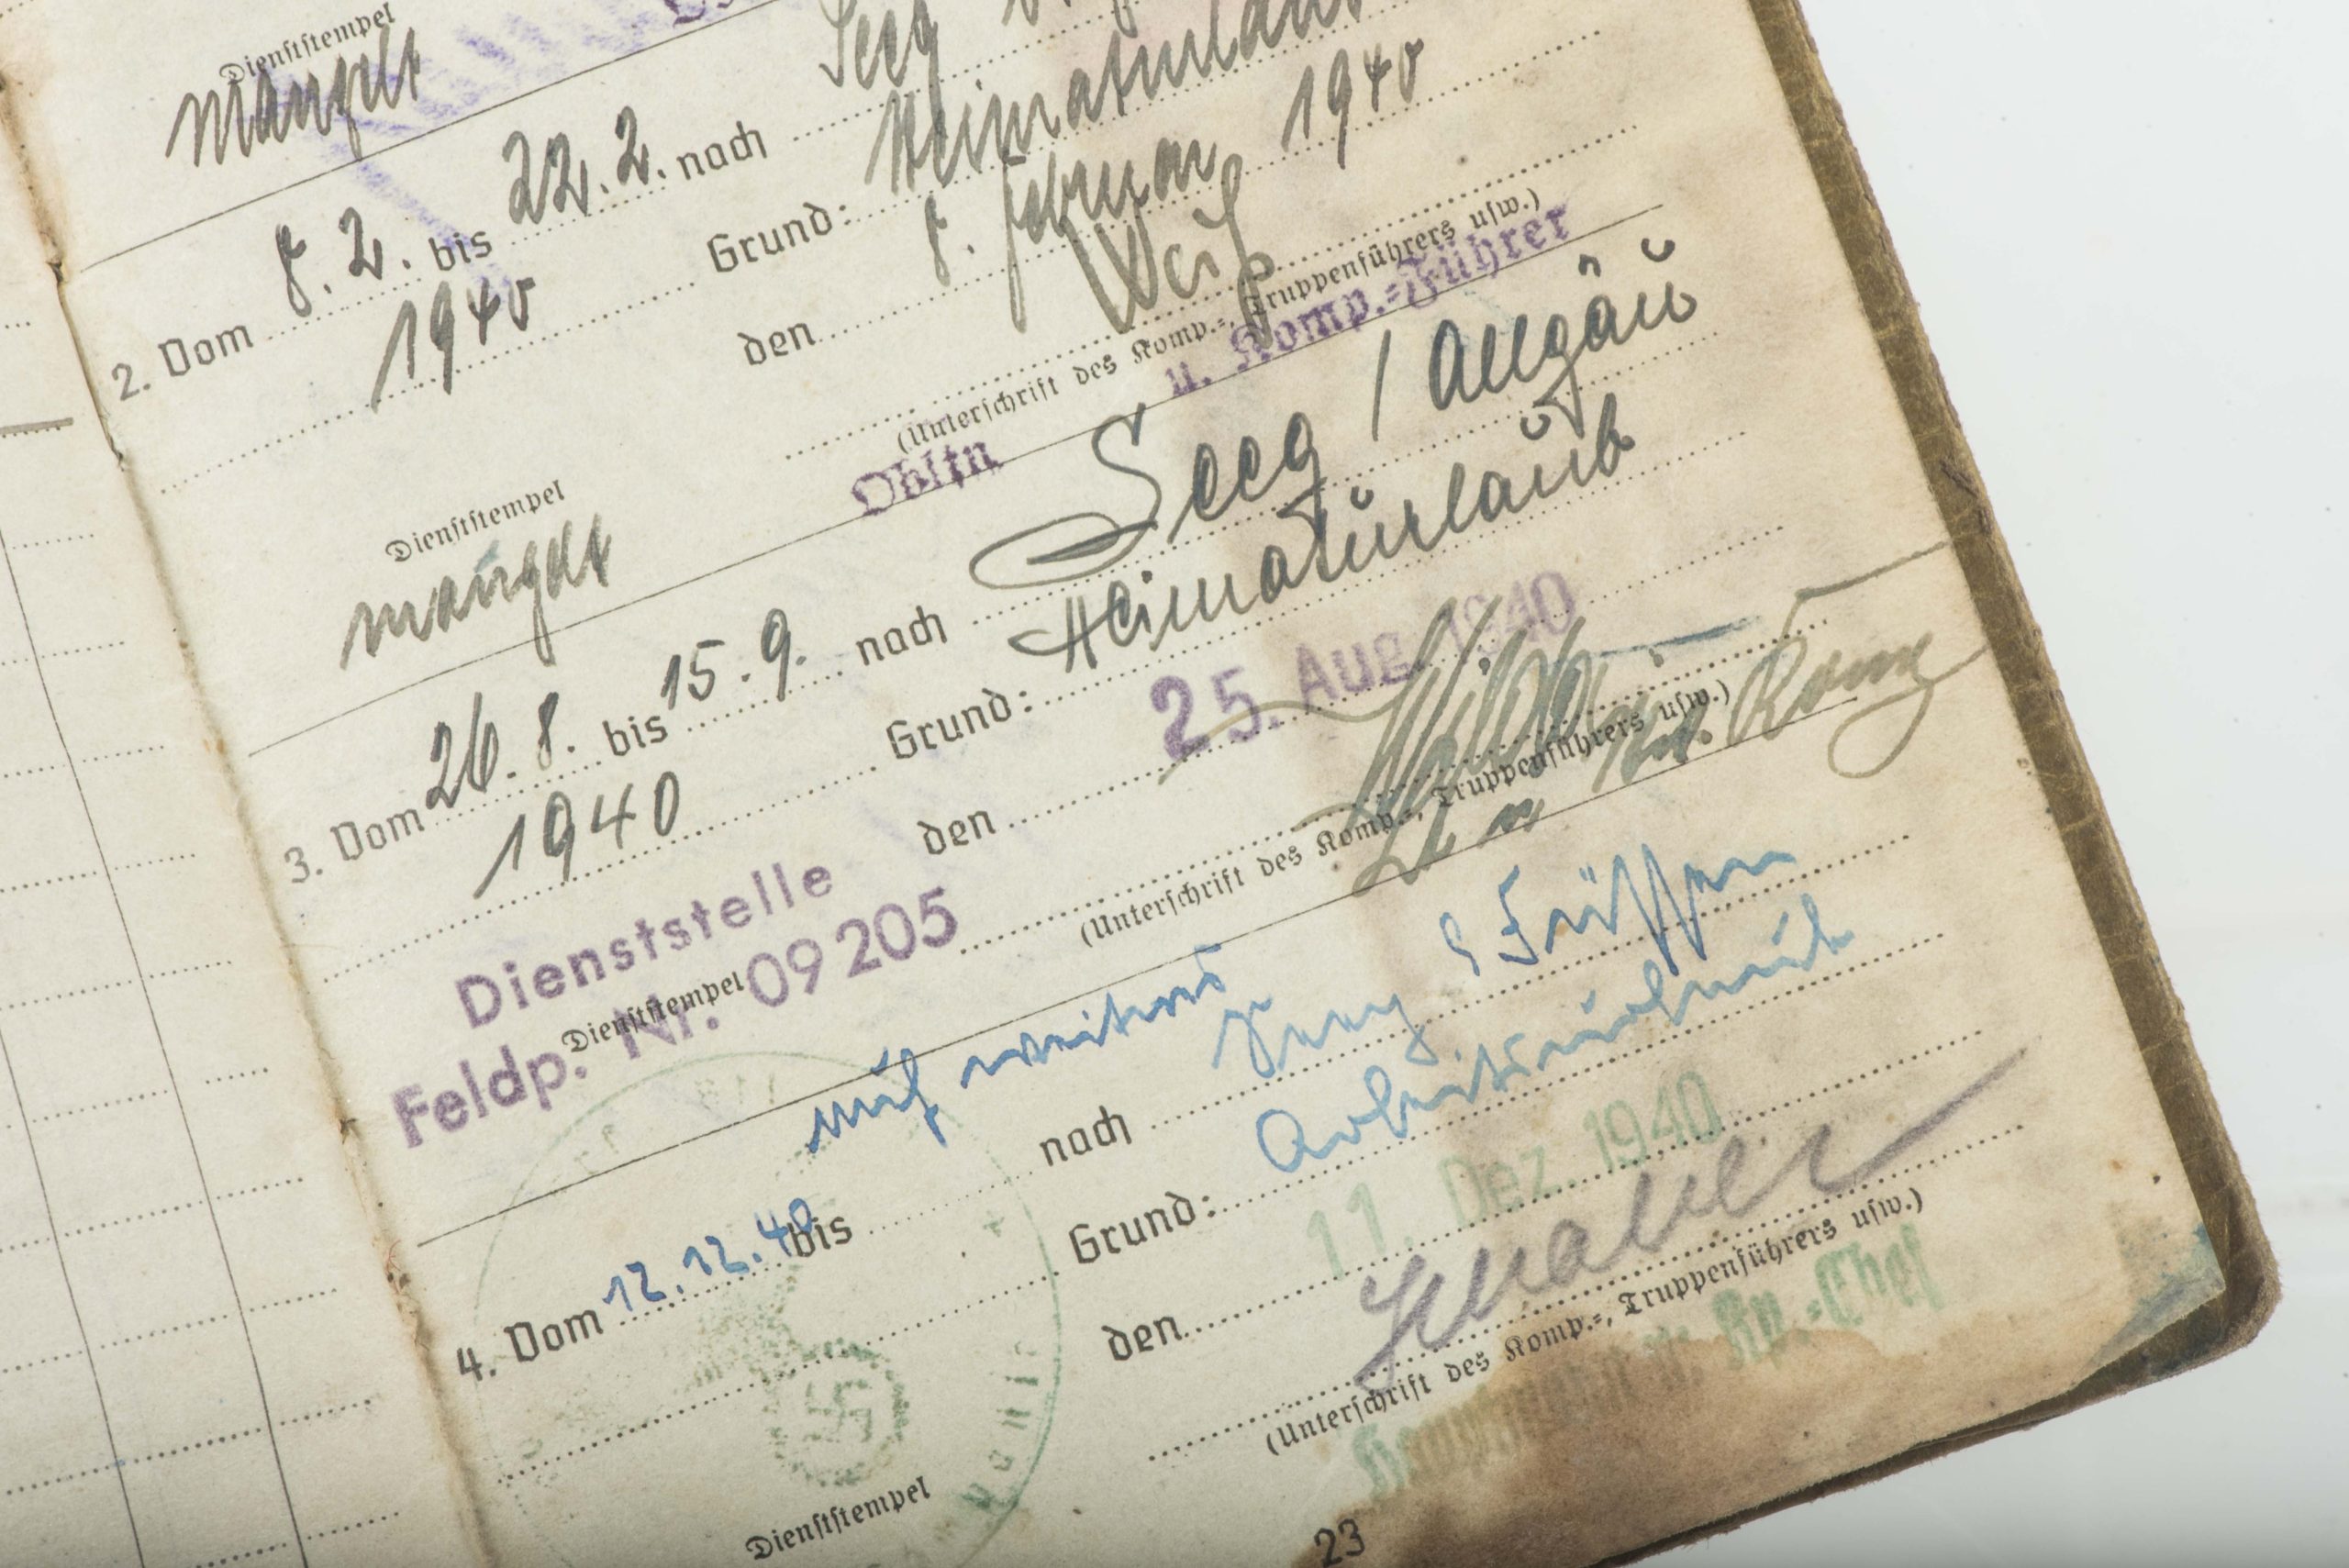 Dienststempel
mangelt
2. Vom 8. 2. bis 22. 2. nach Seeg
1940 Grund: Heimaturlaub
den 8. Februar 1940
Weiß
(Unterschrift des Komp.-, Truppenführers usw.)
Obltn u. Komp.-Führer
Dienststempel
mangelt
3. Vom 26. 8. bis 15. 9. nach Seeg / Allgäu
1940 Grund: Heimaturlaub
den 25. Aug. 1940
(Unterschrift des Komp.-, Truppenführers usw.)
Dienststelle
Feldp. Nr. 09205
Dienststempel
auf weiteres
4. Vom 12. 12. 40 bis nach Seeg / Füssen
Grund: Arbeitsurlaub
den 11. Dez. 1940
(Unterschrift des Komp.-, Truppenführers usw.)
Hauptmann u. Kp.-Chef
Dienststempel
23